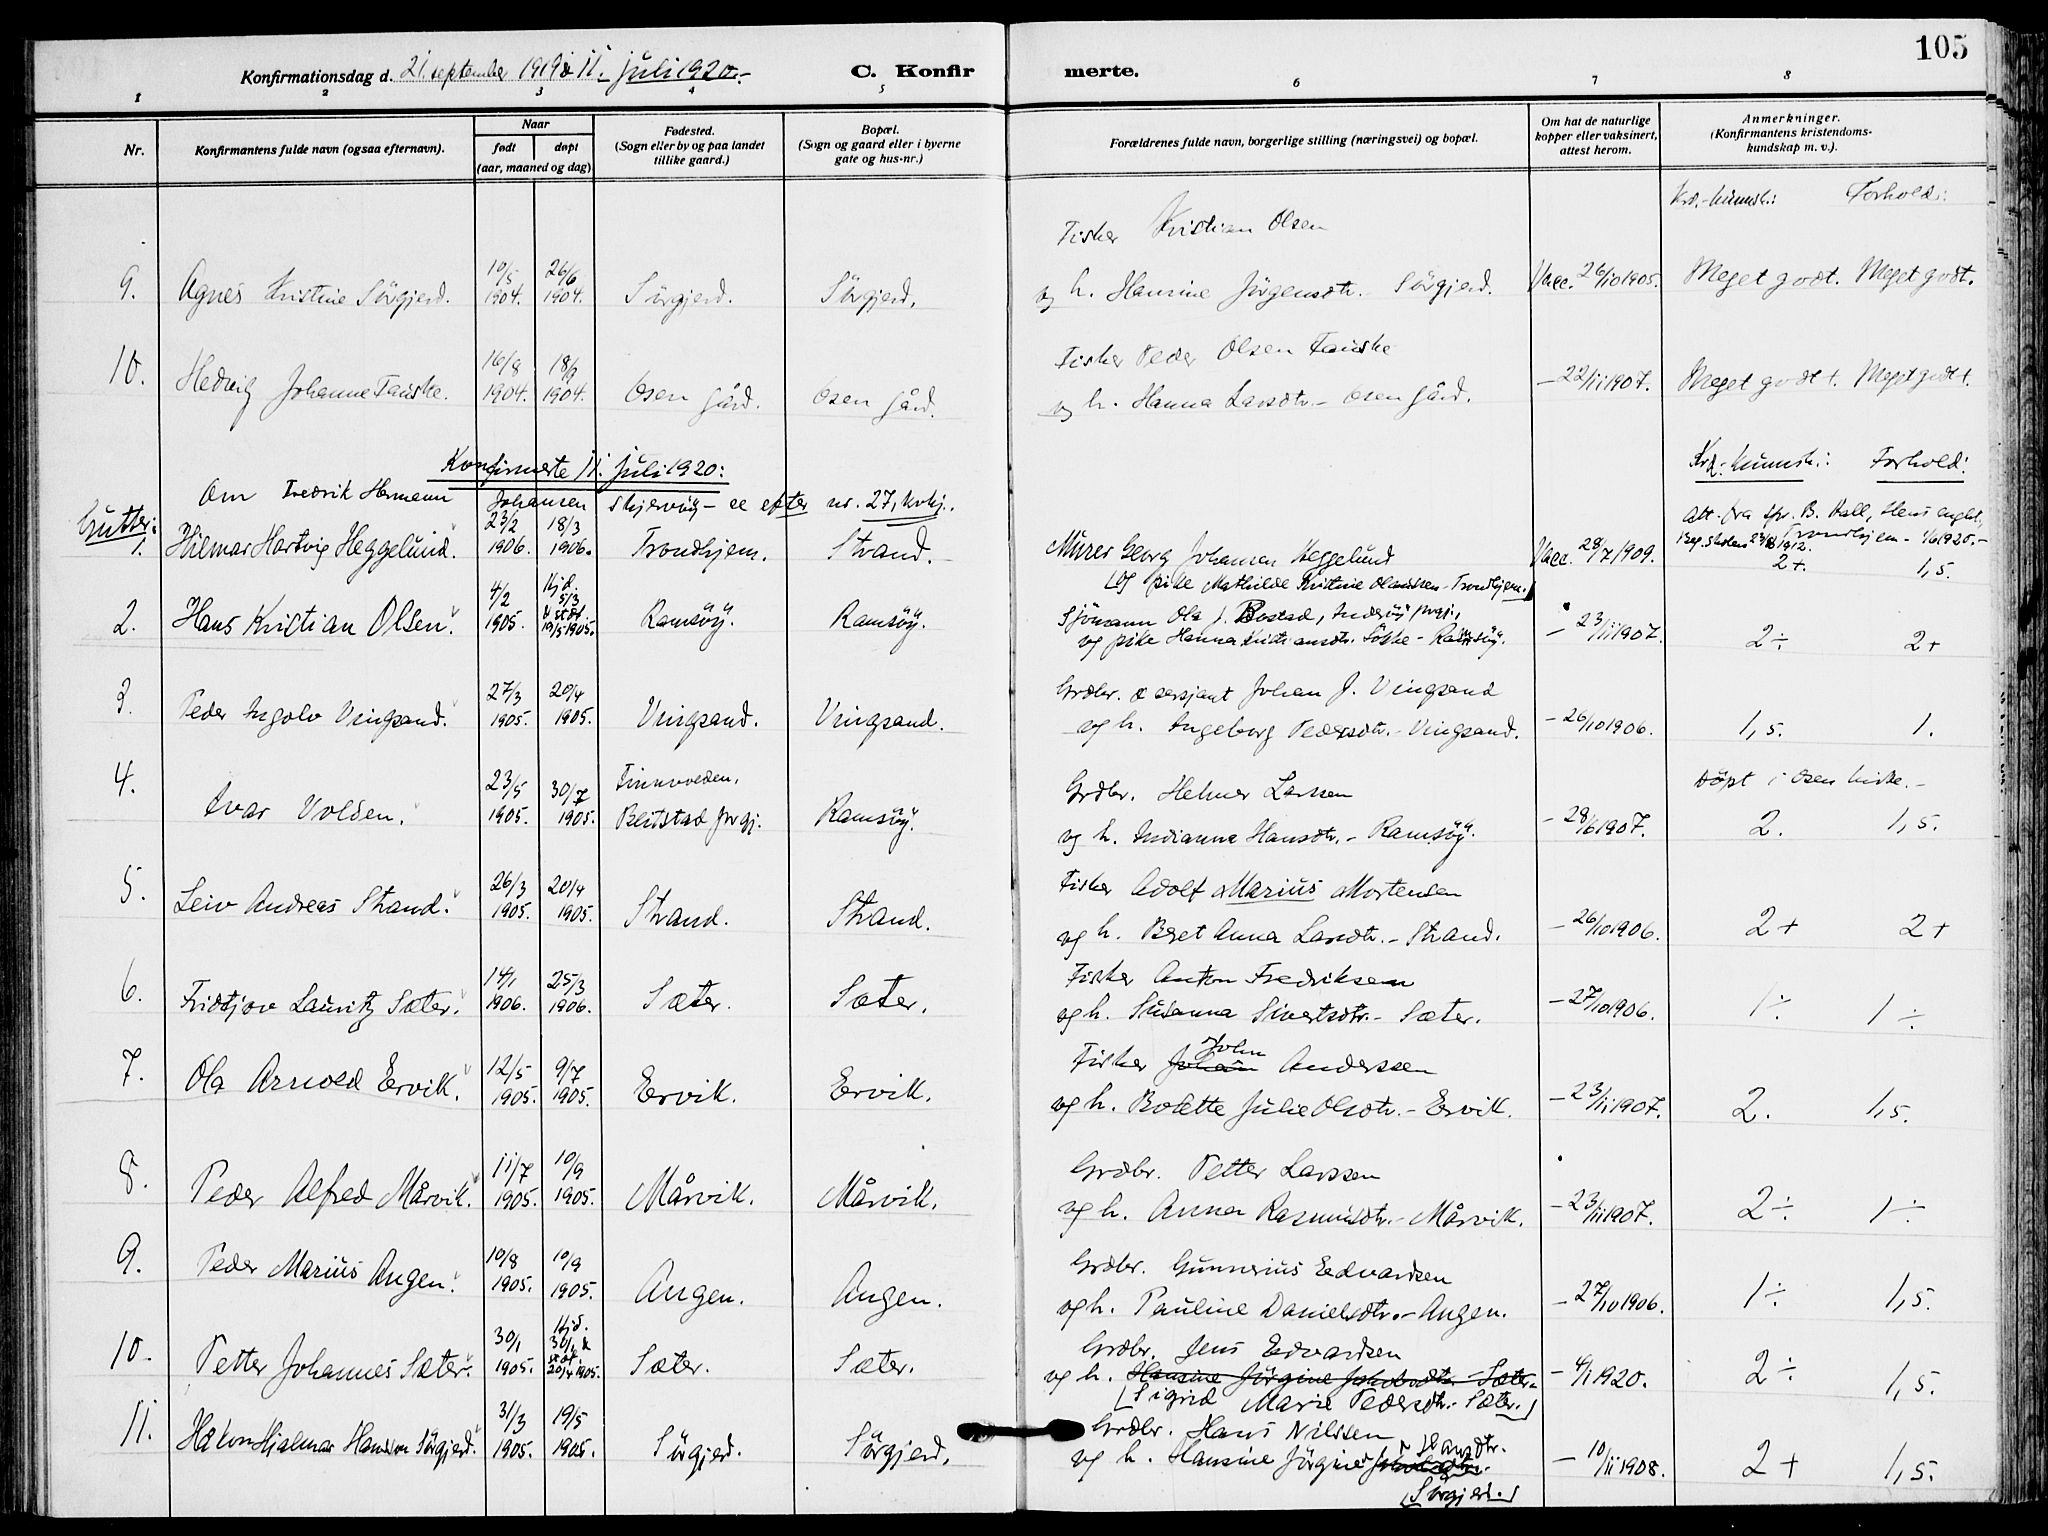 105
Konfirmationsdag d. 21. september 1919 & 11. juli 1920.-
C. Konfir
merte.
1 2 3 4 5 6 7 8
Nr.
Konfirmantens fulde navn (ogsaa efternavn).
Naar
født
døpt
(aar, maaned og dag)
Fødested.
(Sogn eller by og paa landet
tillike gaard.)
Bopæl.
(Sogn og gaard eller i byerne
gate og hus-nr.)
Forældrenes fulde navn, borgerlige stilling (næringsvei) og bopæl.
Om hat de naturlige
kopper eller vaksinert,
attest herom.
Anmerkninger.
(Konfirmantens kristendoms-
kundskap m. v.).
Krd.-kunnsk.: Forhold:
Fisker Kristian Olsen
9. Agnes Kristine Sörgjerd. 10/5 1904. 26/6 1904. Sörgjerd. Sörgjerd. og h. Hansine Jörgensdtr. Sörgjerd. Vacc. 26/10 1905. Meget godt. Meget godt.
Fisker Peder Olsen Fauske
10. Hedvig Johanne Fauske. 16/8 1904. 18/9 1904. Osen gård. Osen gård. og h. Hanna Larsdtr. - Osen gård. - 22/11 1907. Meget godt +. Meget godt +.
Konfirmerte 11. juli 1920:
Krd.-kunnsk.: Forhold:
Om Fredrik Hermann Johansen Skjervöy - se efter nr. 27, kvkj.
Gutter:
Att. fra spr. B. Kall,
1. Hilmar Hartvig Heggelund. 23/2 1906. 18/3 1906. Trondhjem. Strand. Murer Georg Johansen Heggelund Vacc. 28/7 1909. 2+. 1,5.
[og pike Mathilde Kristine Olaussen - Trondhjem.]
2. Hans Kristian Olsen. 4/2 1905. Hjd. 5/3 & stdf. 19/5 1905. Ramsöy. Ramsöy. Sjömann Ola J. Bostad, Inderöy prgj., - 23/11 1907. 2÷ 2+
og pike Hanna Kristiansdtr. - Ramsöy.
3. Peder Ingolv Vingsand. 27/3 1905. 20/4 1905. Vingsand. Vingsand. Grdbr. & sersjant Johan J. Vingsand
og h. Ingeborg Pedersdtr. - Vingsand. - 26/10 1906. 1,5. 1.
4. Ivar Volden. 23/5 1905. 30/7 1905. Finnvolden, Beitstad prgj. Ramsöy. Grdbr. Helmer Larssen Döpt i Osen kirke.-
og h. Indianna Hansdtr. - Ramsöy. - 28/6 1907. 2. 1,5.
5. Leiv Andreas Strand. 26/3 1905. 20/4 1905. Strand. Strand. Fisker Adolf Marius Mortensen
og h. Beret Anna Larsdtr. - Strand. - 26/10 1906. 2+ 2+
6. Fridtjov Lauritz Sæter. 14/1 1906. 25/3 1906. Sæter. Sæter. Fisker Anton Fredriksen
og h. Susanna Sivertsdtr. - Sæter. - 27/10 1906. 1÷ 1÷
7. Ola Arnold Ervik. 12/5 1905. 9/7 1905. Ervik. Ervik. Fisker Johan John Anderssen
og h. Bolette Julie Olsdtr. - Ervik. - 23/11 1907. 2. 1,5.
8. Peder Alfred Mårvik. 11/7 1905. 10/9 1905. Mårvik. Mårvik. Grdbr. Petter Larssen
og h. Anna Rasmusdtr. - Mårvik. - 23/11 1907. 2÷ 1÷
9. Peder Marius Angen. 10/8 1905. 10/9 1905. Angen. Angen. Grdbr. Gunnerius Edvardsen
og h. Pauline Danielsdtr. - Angen. - 27/10 1906. 1÷ 1,5.
10. Petter Johannes Sæter. 30/1 1905. Hjd. 30/1 & stdf. 20/4 1905. Sæter. Sæter. Grdbr. Jens Edvardsen
og h. Hansine Jörgine Jakobsdtr. Sæter. - 4/1 1920. 2÷ 1,5.
[Sigrid Marie Pedersdtr. - Sæter.]
11. Håkon Hjalmar Hanssen Sörgjerd. 31/3 1905. 19/5 1905. Sörgjerd. Sörgjerd. Grdbr. Hans Nilssen
og h. Hansine Jörgine Hansdtr. - 10/11 1908. 2+ 1,5.
[Sörgjerd.]